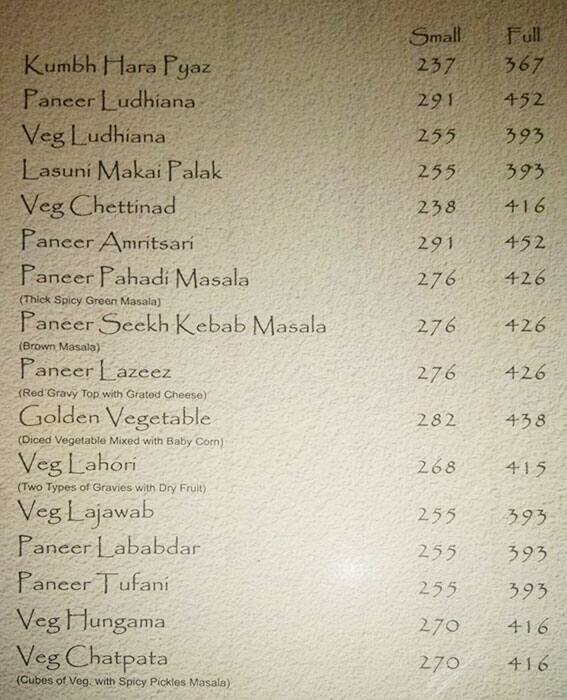 Small Full
Kumbh Hara Pyaz 237 367
Paneer Ludhiana 291 452
Veg Ludhiana 255 393
Lasuni Makai Palak 255 393
Veg Chettinad 238 416
Paneer Amritsari 291 452
Paneer Pahadi Masala 276 426
(Thick Spicy Green Masala)
Paneer Seekh Kebab Masala 276 426
(Brown Masala)
Paneer Lazeez 276 426
(Red Gravy Top with Grated Cheese)
Golden Vegetable 282 438
(Diced Vegetable Mixed with Baby Corn)
Veg Lahori 268 415
(Two Types of Gravies with Dry Fruit)
Veg Lajawab 255 393
Paneer Lababdar 255 393
Paneer Tufani 255 393
Veg Hungama 270 416
Veg Chatpata 270 416
(Cubes of Veg. with Spicy Pickles Masala)